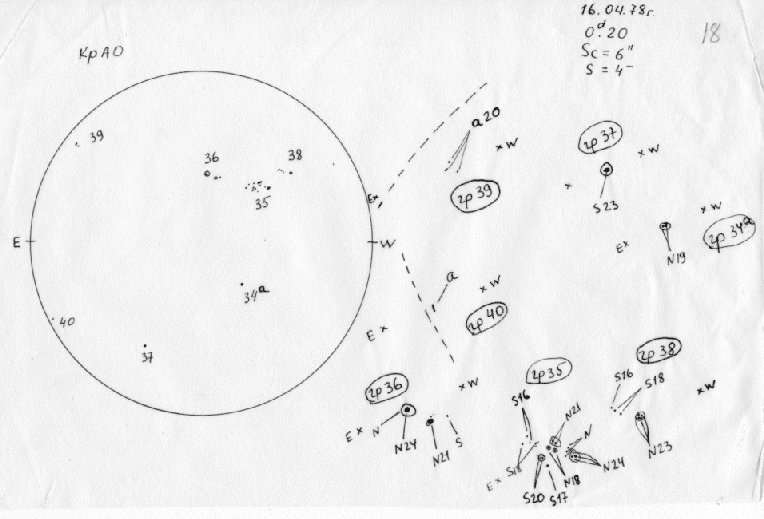 16.04.78г.
0ᵈ.20
Sc = 6"
S = 4-
18
КрАО
39
36
38
35
E
W
34a
40
37
a 20
× W
E×
гр 39
гр 37
× W
×
S23
× W
E×
гр 34a
N19
a
× W
гр 40
E ×
гр 36
× W
E ×
N
N24
N21
S
гр 35
S16
N21
N
E ×
S18
N24
N18
S20
S17
гр 38
S16
S18
× W
N23